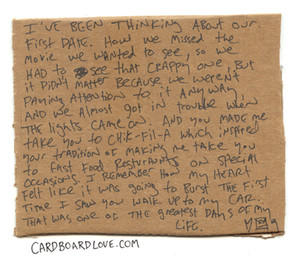 I'VE BEEN THINKING ABOUT OUR
FIRST DATE. HOW WE MISSED THE
MOVIE WE WANTED TO SEE, SO WE
HAD TO SEE THAT CRAPPY ONE, BUT
IT DIDN'T MATTER BECAUSE WE WEREN'T
PAYING ATTENTION TO IT ANY WAY,
AND WE ALMOST GOT IN TROUBLE WHEN
THE LIGHTS CAME ON. AND YOU MADE ME
TAKE YOU TO CHIK-FIL-A WHICH INSPIRED
YOUR TRADITION OF MAKING ME TAKE YOU
TO FAST FOOD RESTURANTS ON SPECIAL
OCCASIONS. I REMEMBER HOW MY HEART
FELT LIKE IT WAS GOING TO BURST THE FIRST
TIME I SAW YOU WALK UP TO MY CAR.
THAT WAS ONE OF THE GREATEST DAYS OF MY
LIFE.
CARDBOARDLOVE.COM